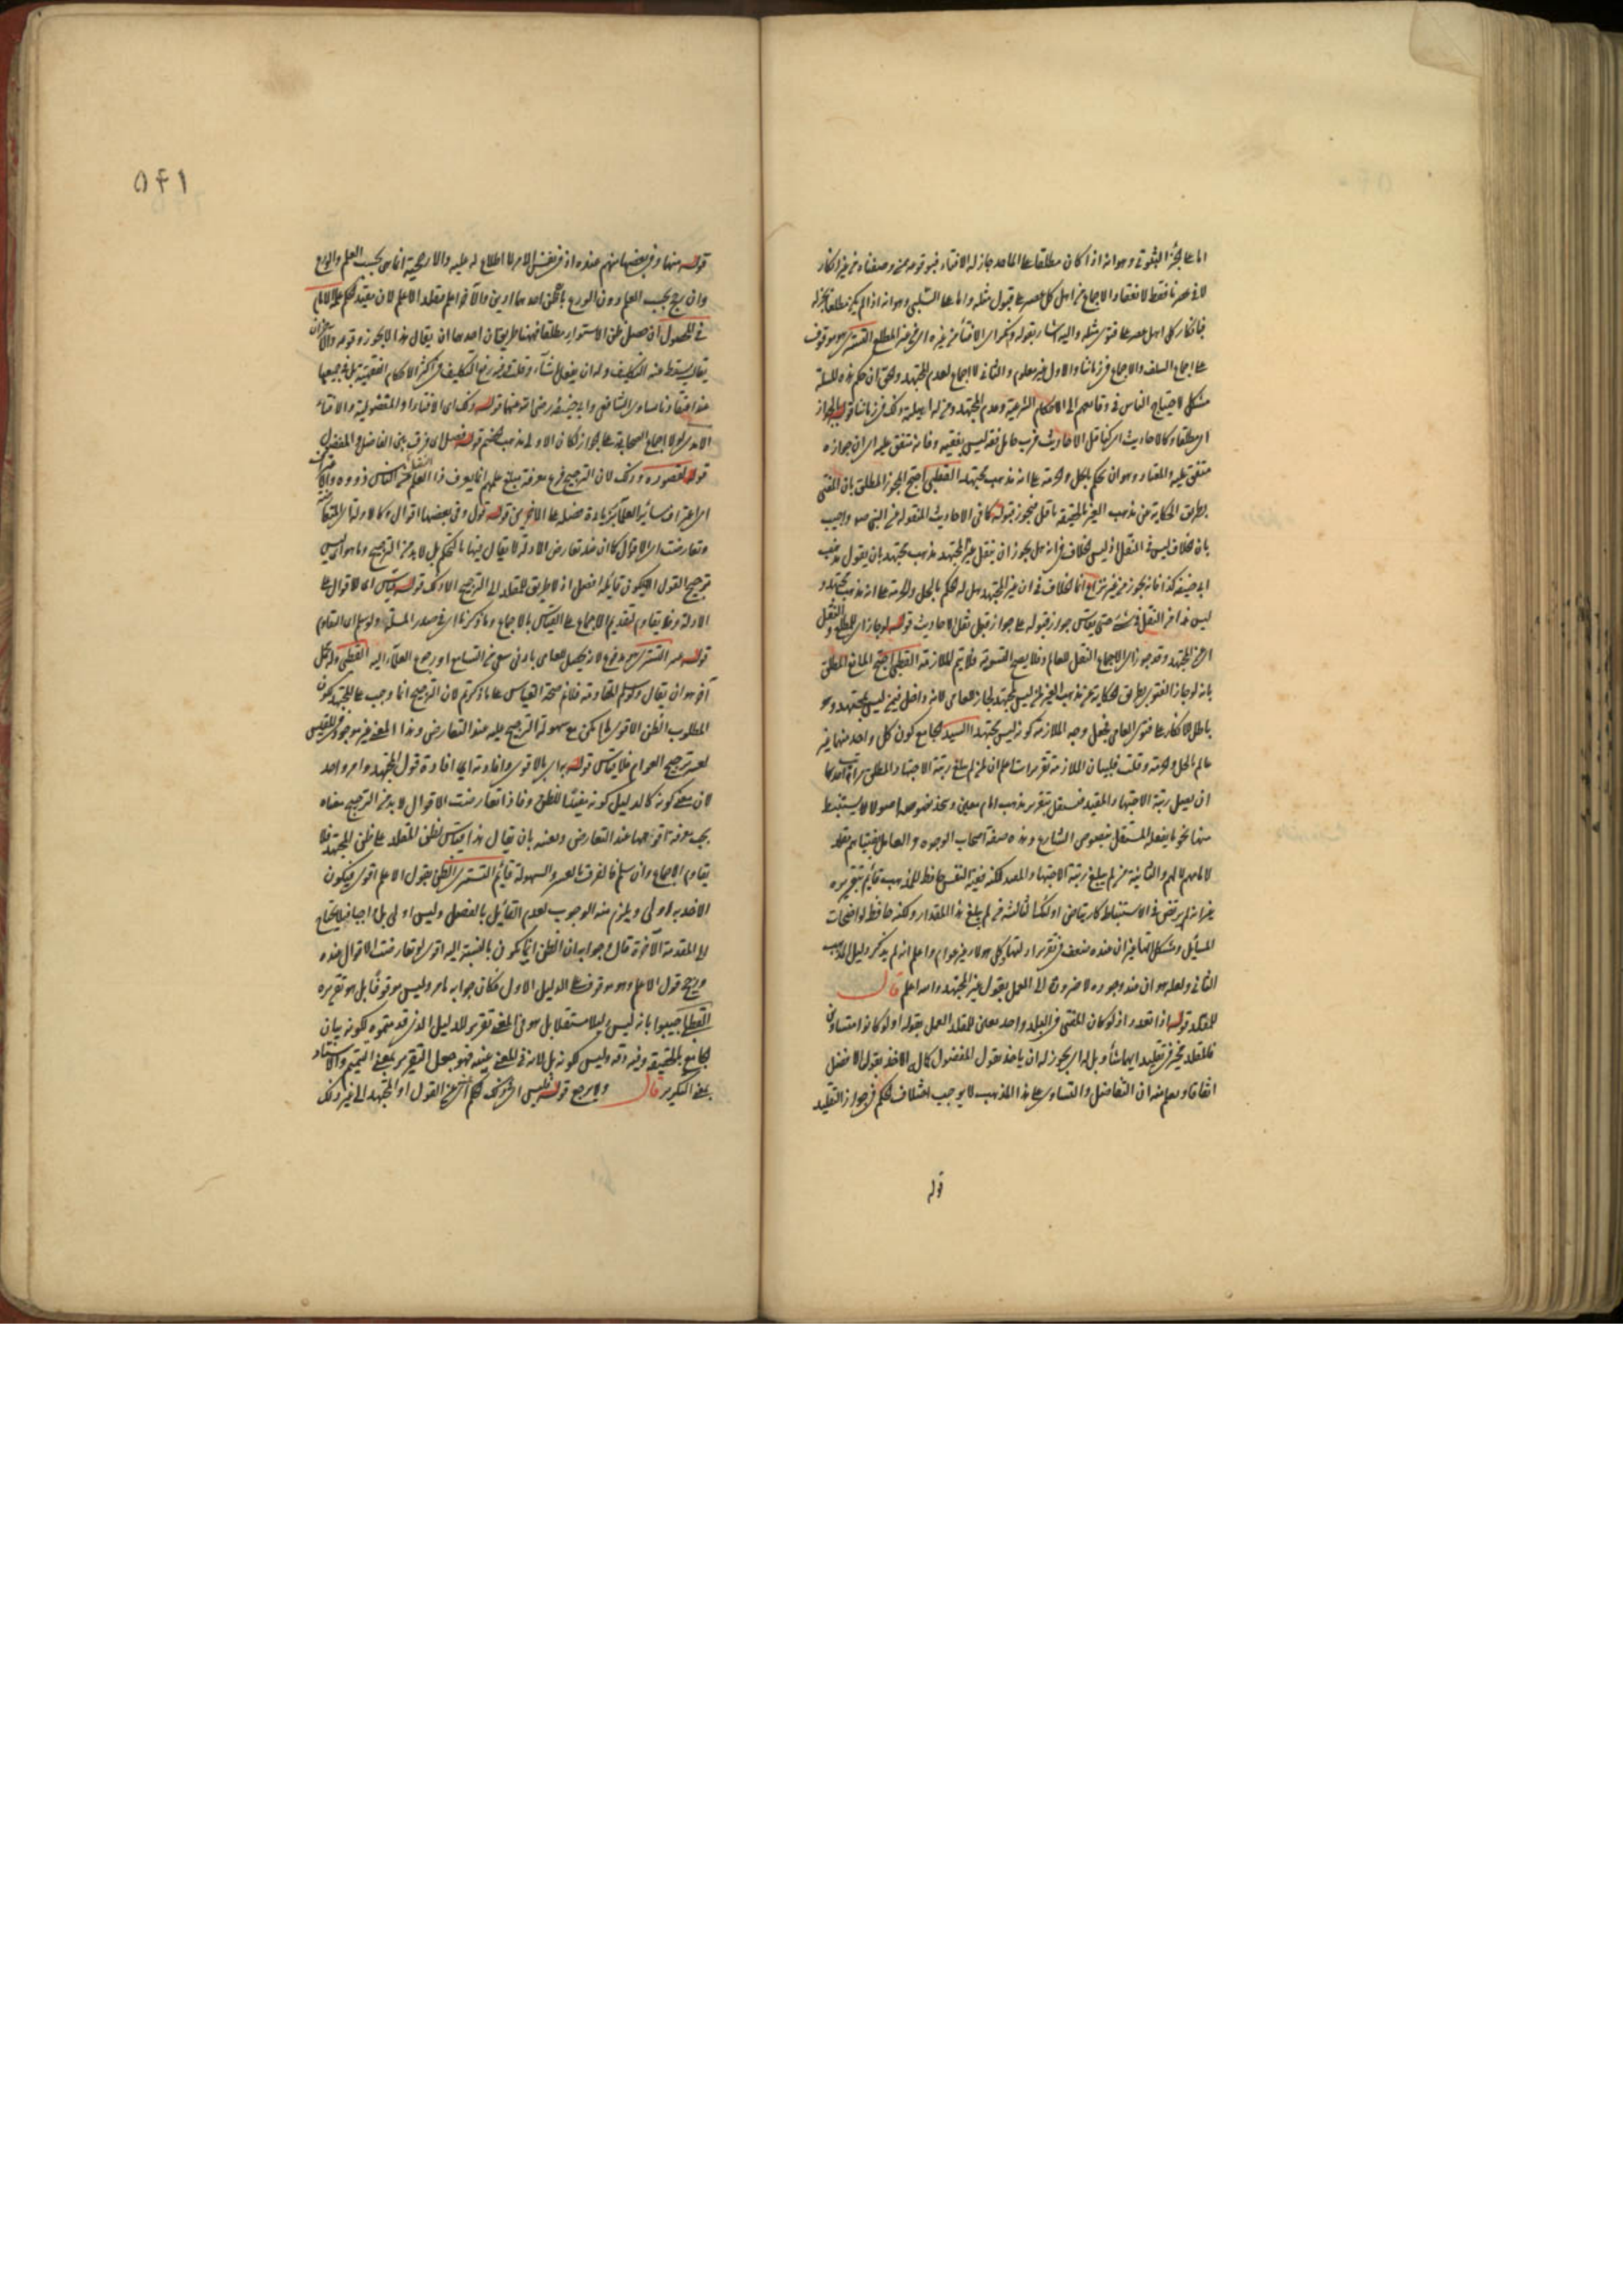 اما على الجزء الثبوتي وهو انه اذا كان مطلعا على المآخذ جاز له الافتاء فبوقوعه من غير انكار
لا في عصرنا فقط لانعقاد الاجماع من اهل كل عصر على قبول مثله واما على السلبي وهو انه اذا لم يكن مطلعا لم يجز له
فبانكار كل اهل عصر على فتوى مثله واليه اشار بقوله وانكر اي الافتاء من غيره اي من غير المطلع التستري هو موقوف
على اجماع السلف والاجماع في زماننا والاول غير معلوم والثاني لا اجماع لعدم المجتهد والحق ان حكم هذه المسئلة
مشكل لاحتياج الناس في وقائعهم الى الاحكام الشرعية وعدم المجتهد ومن له اهلية ذلك في زماننا قوله الجواز
اي مطلقا وكالاحاديث اي كناقل الاحاديث فرب حامل فقه ليس بفقيه وفانه متفق عليه اي ان جوازه
متفق عليه والمعتاد وهو ان يحكم بالحل والحرمة على انه مذهب مجتهد القطبي احتج المجوز المطلق بان المفتي
بطريق الحكاية عن مذهب الغير بالحقيقة ناقل فيجوز قبوله كما في الاحاديث المنقولة عن النبي صم واجيب
بان الخلاف ليس في النقل اذ ليس الخلاف في انه هل يجوز ان ينقل غير المجتهد مذهب مجتهد بان يقول مذهب
ابي حنيفة كذا فانه يجوز من غير نزاع انما الخلاف في ان غير المجتهد هل له الحكم بالحل والحرمة على انه مذهب مجتهد و
ليس هذا من النقل في شيء حتى يقاس جواز قبوله على جواز قبول نقل الاحاديث قوله لو جاز اي للمطلع والنقل
اي عن المجتهد وقد جوزه اي الاجماع النقل للعالم وفلا يصح التسوية فلا يتم الملازمة القطبي احتج المانع المطلق
بانه لو جاز الفتوى بطريق الحكاية عن مذهب الغير لمن ليس بمجتهد لجاز للعامي لانه داخل فيمن ليس بمجتهد وهو
باطل للانكار على فتوى العامي فجعل وجه الملازمة كونه ليس مجتهدا السيد الجامع كون كل واحد منهما غير
عالم بالحل والحرمة وقلت فلبيان الملازمة تقريرات اعلم ان من لم يبلغ رتبة الاجتهاد المطلق مراتب احدها
ان يصل رتبة الاجتهاد المقيد فيستقل بتقرير مذهب امام معين ويتخذ نصوصه اصولا لا يستنبط
منها نحو ما يفعل المستقل بنصوص الشارع وهذه صفة اصحاب الوجوه و العامل بفتياهم مقلد
لامامهم لا لهم والثانية من لم يبلغ رتبة الاجتهاد المقيد لكنه فقيه النفس حافظ للمذهب قائم بتقريره
غير انه لم يرتض في الاستنباط كارتياض اولئك الثالثة من لم يبلغ هذا المقدار ولكنه حافظ لواضحات
المسائل ومشكلاتها غير ان عنده ضعف في تقرير ادلتها وكل هولاء غير عوام واعلم انه لم يذكر دليل المذهب
الثاني ولعله هو ان عند وجوده لا ضرورة الى العمل بقول غير المجتهد والله اعلم قال
للمقلد قوله اذا تعدد اذ لو كان المفتي في البلد واحد تعين للمقلد العمل بقوله اولو كانوا متساوين
فالمقلد مخير في تقليد ايهما شاء وبل له اي يجوز له ان ياخذ بقول المفضول كما له الاخذ بقول الافضل
اتفاقا ويعلم منه ان التفاضل والتساوي على هذا المذهب لا يوجب اختلاف الحكم في جواز التقليد
قوله
٥٢١
قوله منها وفي بعضها منهم عنده اذ في نفس الامر لا اطلاع له عليه والارجحية انما هي بحسب العلم والورع
وان رجح بحسب العلم دون الورع بالظن احدهما ادين والآخر اعلم مقلد الاعلم لان مفيد الحكم علمه الامام
في المحصول ان حصل ظن الاستواء مطلقا فههنا طريقان احدهما ان يقال هذا لا يجوز وقوعه والآخر ان
يقال يسقط عنه التكليف وله ان يفعل ما شاء وقلت وفيه رفع التكليف في اكثر الاحكام الفقهية بل في جميعها
عند اعتقادنا تساوي الشافعي وابي حنيفة رضي الله عنهما قوله ذلك اي الافتاء او المفضولية والافتاء
الاول اي لولا اجماع الصحابة على الجواز لكان الاولى مذهب الخصم قوله تفصل اي فرق بين الفاضل والمفضول
قوله لقصوره وذلك لان الترجيح فرع معرفة مبلغ علمهم انما يعرف ذا الفضل من الناس ذووه والاعتراف
اي اعتراف سائر العلماء بزيادة فضله على الآخرين قوله قول وفي بعضها اقوال وكالادلة المتعارضة
وتعارضت اي الاقوال كما ان عند تعارض الادلة لا يقال فيها بالتحكم بل لا بد من الترجيح وما هو اي ليس
ترجيح القول الا بكون قائله افضل اذ لا طريق للمقلد الى الترجيح الا ذلك قوله قياس اي للاقوال على
الادلة وفلا يقاوم لتقديم الاجماع على القياس بالاجماع وما ذكرنا اي في صدر المسئلة ولو سلم اي التقاوم
قوله عسر التستري هو مدفوع لانه يحصل للعامي بادنى سعي من التسامع او رجوع العلماء اليه القطبي وللحل
آخر هو ان يقال ولو سلم المقاومة فلا نم صحة القياس على ما ذكرتم لان الترجيح انما وجب على المجتهد لكون
المطلوب الظن الاقوى ما امكن مع سهولة الترجيح عليه عند التعارض وهذا المعنى غير موجود في المقيس
لعسر ترجيح العوام فلا يقاس قوله به اي بالاقوى وافادته اي افادة قول المجتهد وامر واحد
لان معنى كونه كالدليل كونه مفيدا للظن وفاذا تعارضت الاقوال لا بد من الترجيح معناه
يجب معرفة اقواها عند التعارض وبعينه بان يقال هذا قياس لظن المقلد على ظن المجتهد فلا
يقاوم الاجماع وان سلم فالفرق بالعسر والسهولة قائم التستري الظن بقول الاعلم اقوى فيكون
الاخذ به اولى ويلزم منه الوجوب لعدم القائل بالفصل وليس اولى بل واجبا فلا يحتاج
الى المقدمة الآخرة قال وجوابه ان الظن انما يكون بالنسبة اليه اقوى لو تعارضت الاقوال عنده
ورجح قول الاعلم وهو موقوف على الدليل الاول فكان جوابه ما مر وليس موقوفا بل هو تقريره
القطبي اجيبوا بانه ليس دليلا مستقلا بل هو في الحقيقة تقرير للدليل الذي قد متموه لكونه بيان
الجامع بالحقيقة وفيه دقة وليس كونه بل لازم في المعنى عينه فهو جعل التقرير بمعنى التتميم والاستاد
بمعنى التكرير قال ولا يرجع قوله فليس اي ذلك الحكم اي عن القول او المجتهد الى غير ذلك